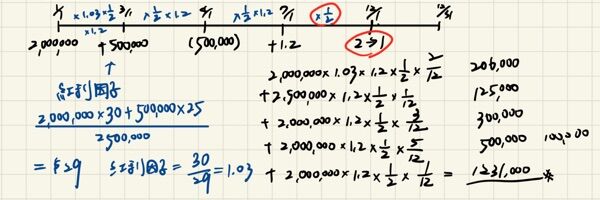 1/1 3/1 4/1 7/1 12/1 12/31
×1.03×1/2 ×1/2×1.2 ×1/2×1.2 ×1/2
×1.2
2,000,000 +500,000 (500,000) +1.2 2→1
紅利因子
2,000,000×30+500,000×25
2500,000
= $29 紅利因子 = 30/29 = 1.03
2,000,000×1.03×1.2×1/2×2/12 206,000
+2,500,000×1.2×1/2×1/12 125,000
+ 2,000,000×1.2×1/2×3/12 300,000
+ 2,000,000×1.2×1/2×5/12 500,000 100,000
+ 2,000,000×1.2×1/2×1/12 = 1231,000 *